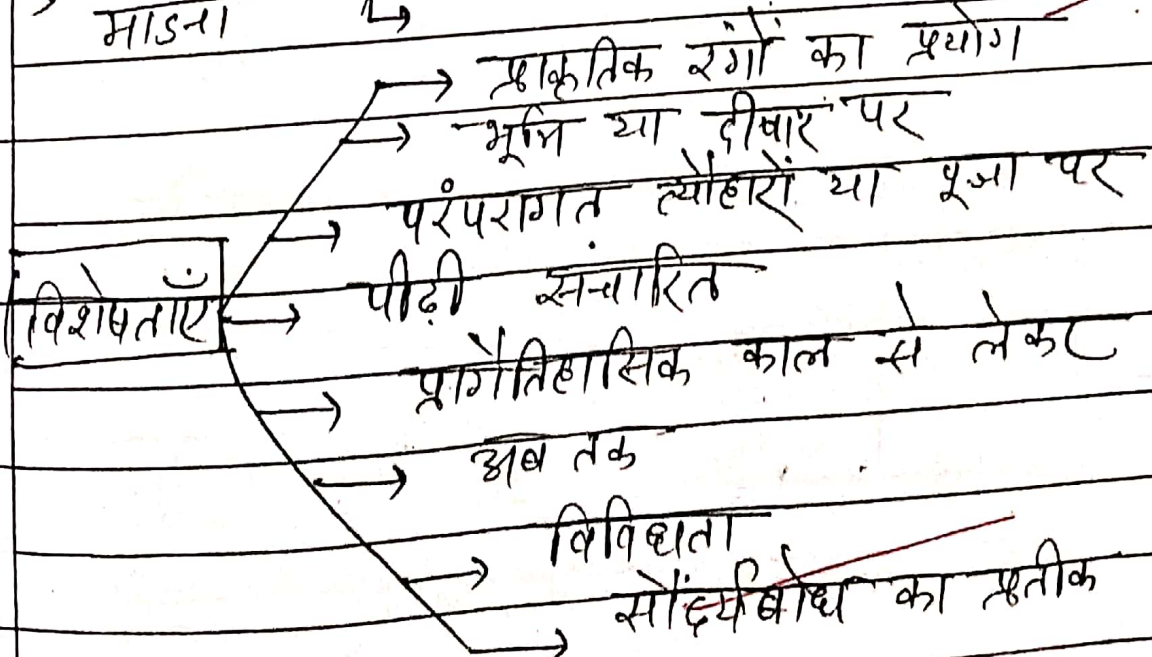 माडना
प्राकृतिक रंगों का प्रयोग
भूमि या दीवार पर
परंपरागत त्यौहारों या पूजा पर
विशेषताएँ
पीढ़ी संचारित
प्रागैतिहासिक काल से लेकर
अब तक
विविधता
सौंदर्यबोध का प्रतीक